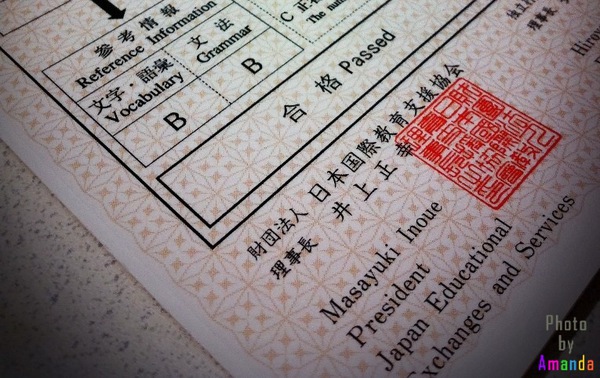 参考情報
Reference Information
文字・語彙
Vocabulary
文法
Grammar
B
B
合格 Passed
財団法人 日本国際教育支援協会
理事長 井上正幸
Masayuki Inoue
President
Japan Educational
Exchanges and Services
理事長
Photo
by
Amanda